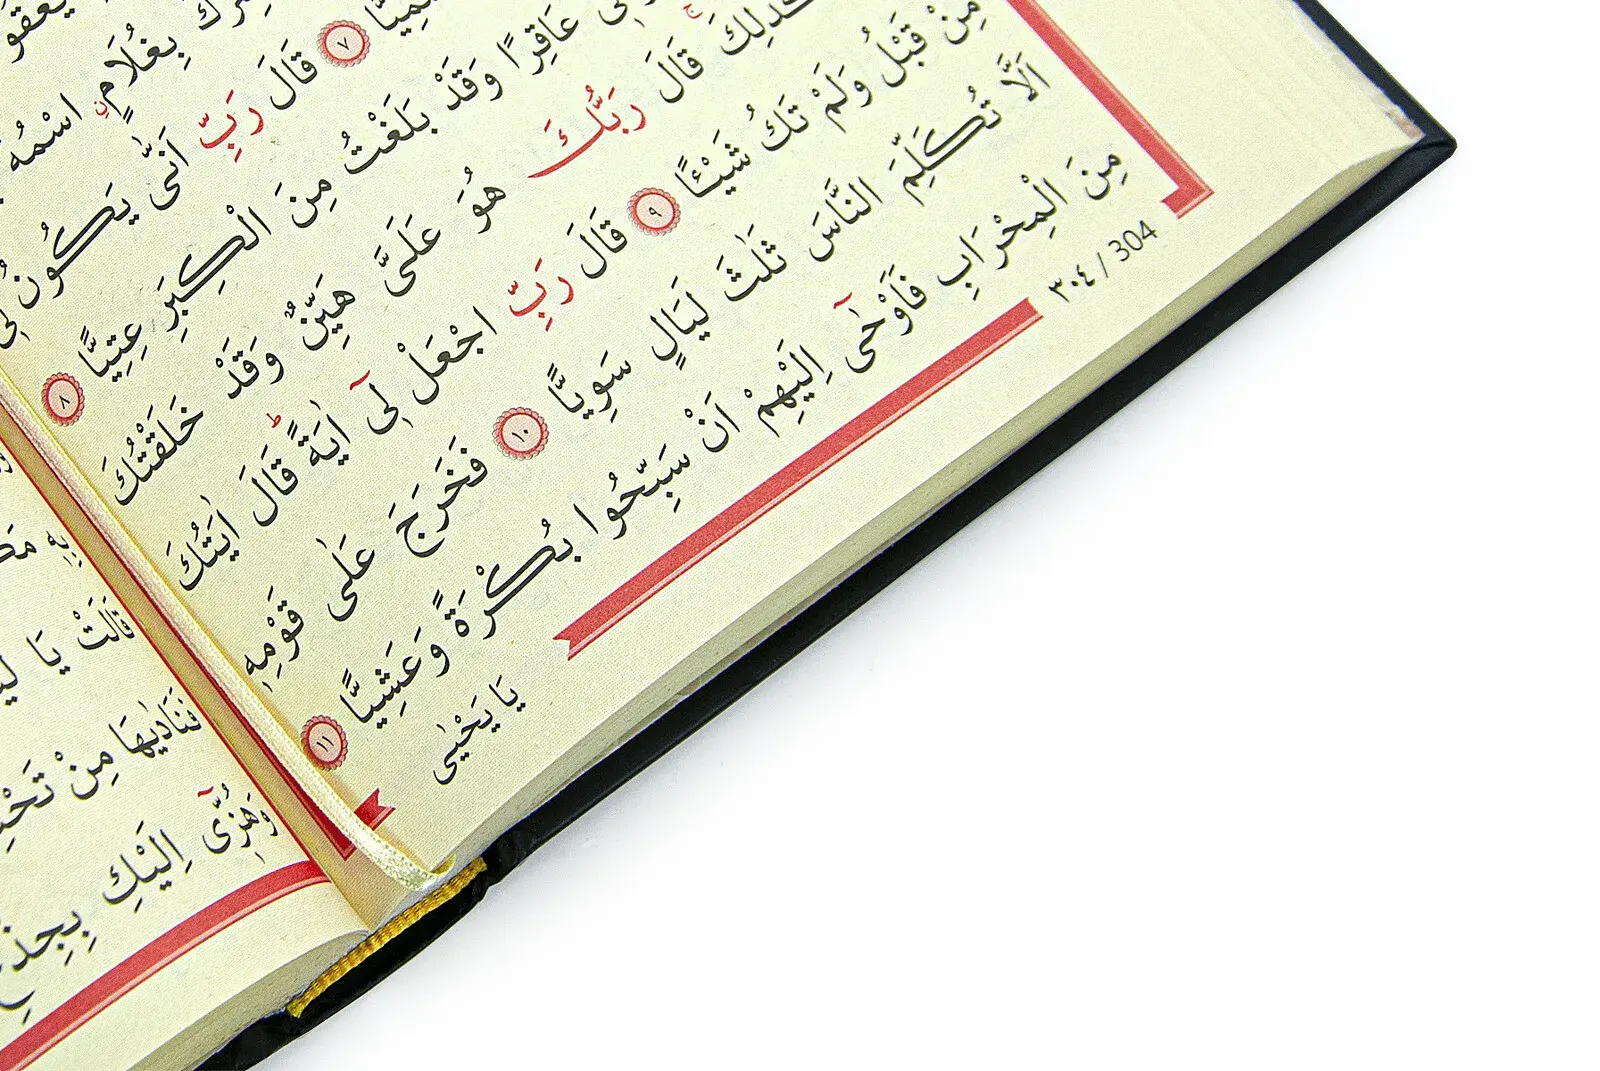 بِغُلَامٍ اسْمُهُ
سَمِيًّا ٧ قَالَ رَبِّ اَنّٰى يَكُونُ لِى
عَاقِرًا وَقَدْ بَلَغْتُ مِنَ الْكِبَرِ عِتِيًّا ٨
كَذٰلِكَ قَالَ رَبُّكَ هُوَ عَلَىَّ هَيِّنٌ وَقَدْ خَلَقْتُكَ
مِنْ قَبْلُ وَلَمْ تَكُ شَيْـًٔا ٩ قَالَ رَبِّ اجْعَلْ لٖٓى اٰيَةًۜ قَالَ اٰيَتُكَ
اَلَّا تُكَلِّمَ النَّاسَ ثَلٰثَ لَيَالٍ سَوِيًّا ١٠ فَخَرَجَ عَلٰى قَوْمِهٖ
مِنَ الْمِحْرَابِ فَاَوْحٰٓى اِلَيْهِمْ اَنْ سَبِّحُوا بُكْرَةً وَعَشِيًّا ١١
٣٠٤ / 304
يَا يَحْيٰى
بِهٖ
قَالَتْ يَا
فَنَادٰيهَا مِنْ
وَهُزّٖٓى اِلَيْكِ بِجِذْعِ